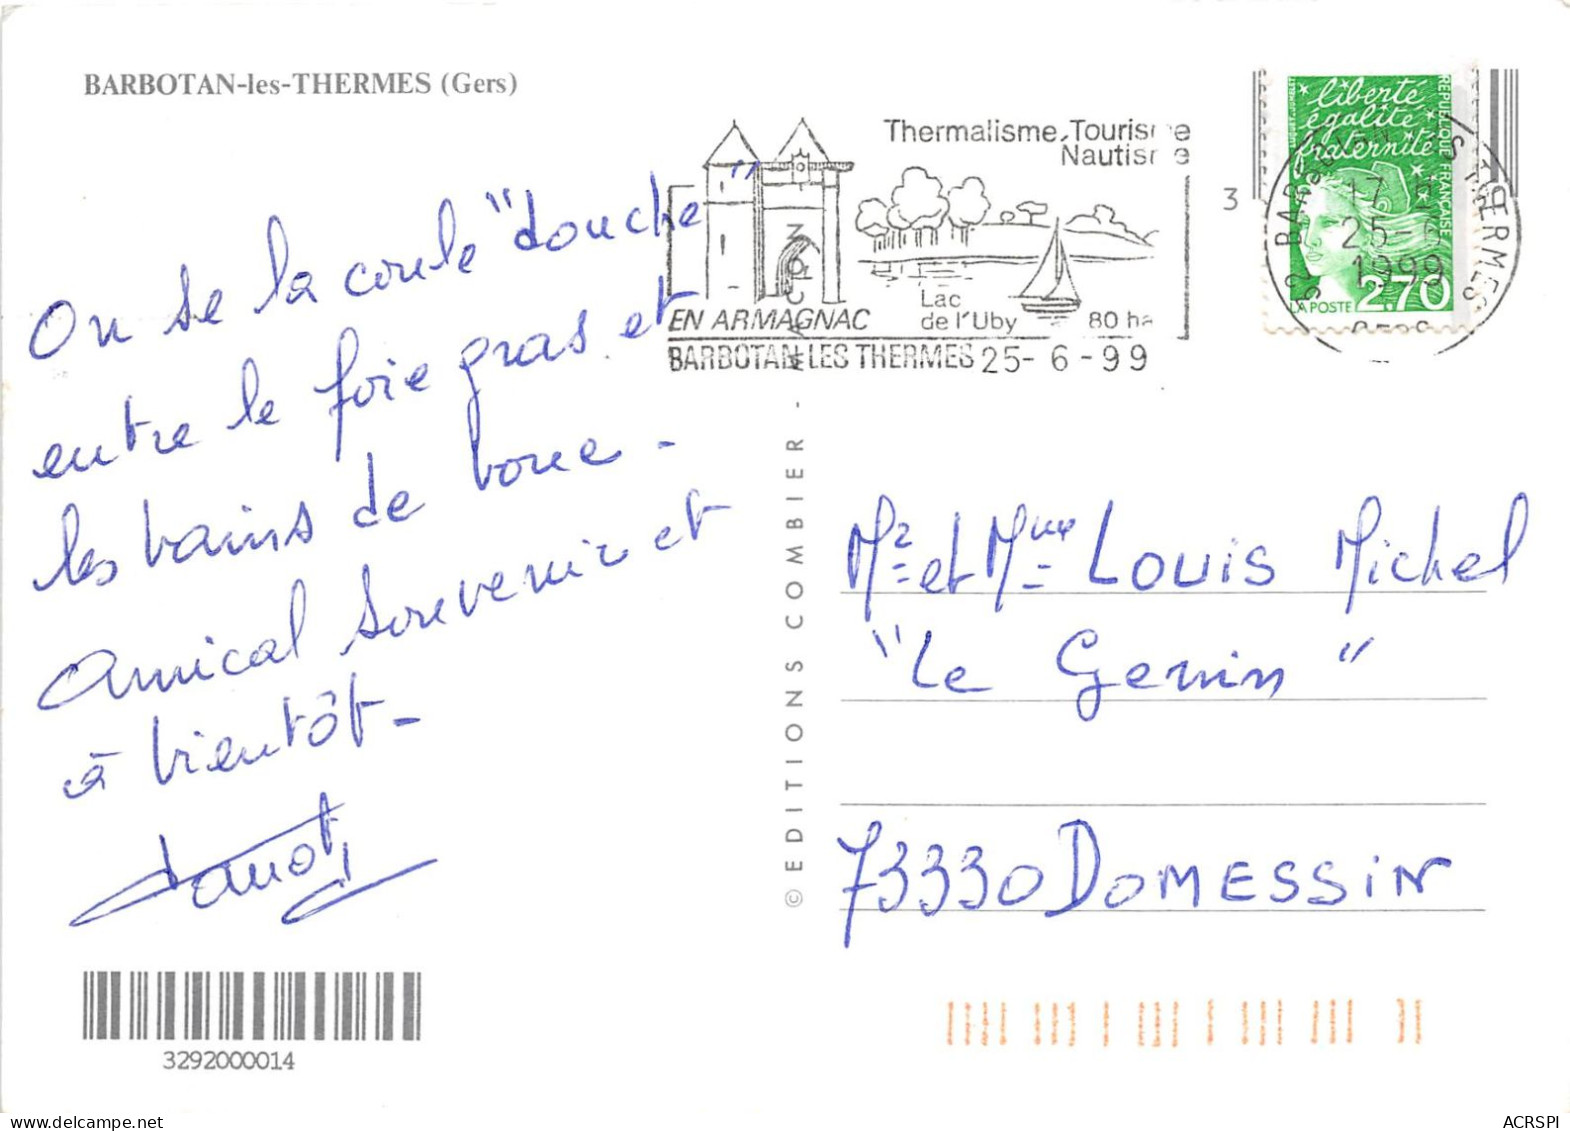 BARBOTAN-les-THERMES (Gers)
On se la coule "douche"
entre le foie gras et
les bains de boue -
Amical souvenir et
à bientôt -
3292000014
© EDITIONS COMBIER - MACON
Thermalisme, Tourisme
Nautisme
EN ARMAGNAC
Lac
de l'Uby
80 ha
BARBOTAN LES THERMES 25- 6 -99
3
liberté
égalité
fraternité
REPUBLIQUE FRANÇAISE
LA POSTE 2.70
32 BARBOTAN LES THERMES
17 H
25-6
1999
GERS
Mr et Mme LOUIS Michel
"Le Genin"
73330 DOMESSIN
ACRSPI